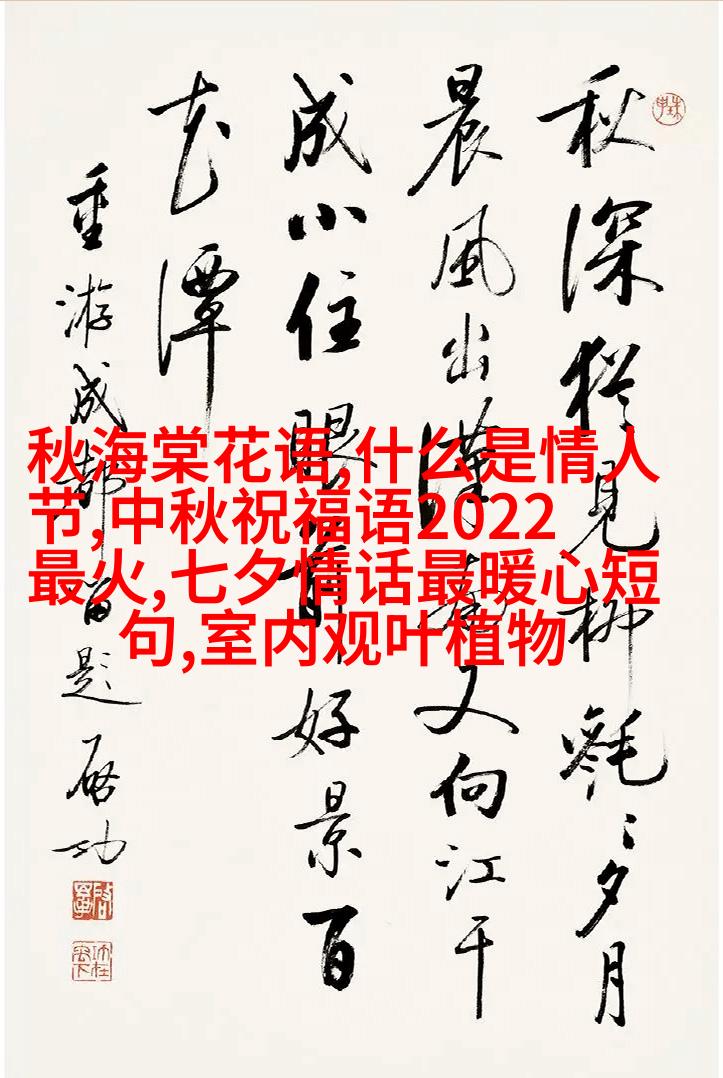 秋深猶見柳毿〻夕月
晨風出漢南又向江干
成小住眼前好景百
花潭
重游成都留題 啟功
秋海棠花语,什么是情人
节,中秋祝福语2022
最火,七夕情话最暖心短
句,室内观叶植物